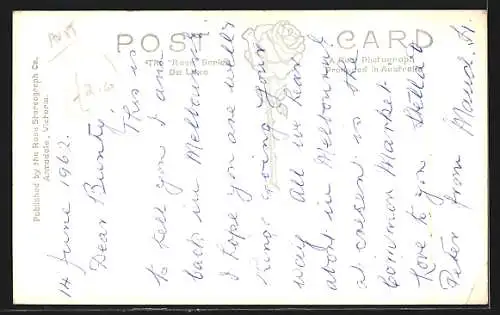 POST CARD
The "Rose" Series
De Luxe
A Real Photograph
Produced in Australia
Published by the Rose Stereograph Co.
Armadale, Victoria.
14 June 1962
Dear Bunty,
This is
to tell you I am
back in Melbourne
I hope you are well &
things going your
way all we hear
about in Melbourne
at present is the
Common Market
Love to you Stella &
Peter from Maud. H.